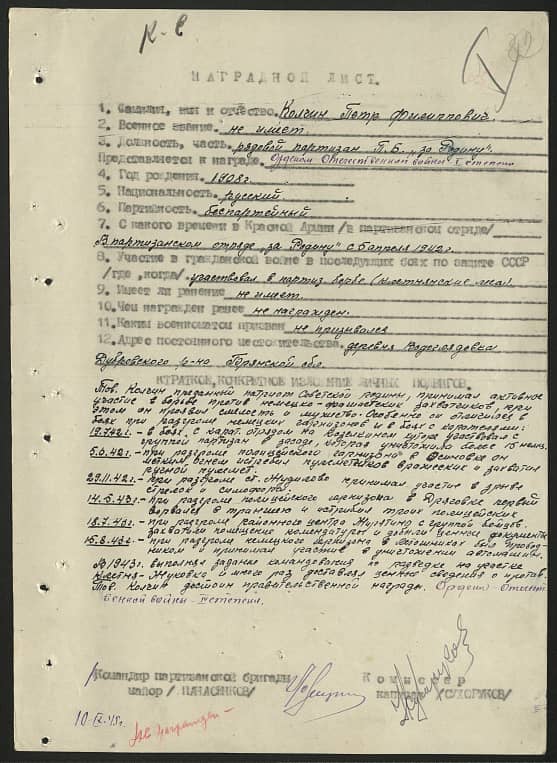 К-с
НАГРАДНОЙ ЛИСТ.
1. Фамилия, имя и отчество Колчин Петр Филиппович.
2. Военное звание не имеет.
3. Должность, часть рядовой партизан П.Б. „за Родину".
Представляется к награде Орденом Отечественной войны I степени
4. Год рождения 1908г.
5. Национальность русский.
6. Партийность беспартейный
7. С какого времени в Красной Армии /в партизанском отряде/
В партизанском отряде „за Родину" с 5 апреля 1942г.
8. Участие в гражданской войне в последующих боях по защите СССР
/где, когда/ участвовал в партиз. борьбе (клетнянские леса).
9. Имеет ли ранение не имеет.
10. Чем награжден ранее не награжден.
11. Каким военкоматом призван не призывался
12. Адрес постоянного местожительства деревня
Дубровского р-на Брянской обл.
КРАТКОЕ, КОНКРЕТНОЕ ИЗЛОЖЕНИЕ ЛИЧНЫХ ПОДВИГОВ.
Тов. Колчин преданный патриот Советской родины, принимал активное
участие в борьбе против немецко-фашистских захватчиков, при
этом он проявил смелость и мужество. Особенно он отличился в
боях при разгроме немецких гарнизонов и в боях с карателями:
19.7.42г. - в бою с карат. отрядом на участвовал с
группой партизан в засаде, которая уничтожила более 15 немц.
5.8.42г. - при разгроме полицейского гарнизона в Осиновке он
метким огнем истребил пулеметчиков вражеских и захватил
ручной пулемет.
29.11.42г. - при разгроме ст. Жудилово принимал участие в взрыве
стрелок и семафора.
14.5.43г. - при разгроме полицейского гарнизона в первый
ворвался в траншею и истребил троих полицейских
18.7.43г. - при разгроме районного центра с группой бойцов
захватили помещение комендатуры и добыли ценные документы
15.8.43г. - при разгроме немецкого гарнизона в был проводником
и принимал участие в уничтожении автомашины.
В 1943г. выполняя задания командования по разведке на участке
Клетня-Жуковка и много раз доставлял ценные сведения о против.
Тов. Колчин достоин правительственной награды. Ордена Отечест
венной войны - II степени.
Командир партизанской бригады Комиссар
майор /ПАНАСЕНКОВ/ капитан /СУХОРУКОВ/
10.IX.45г.